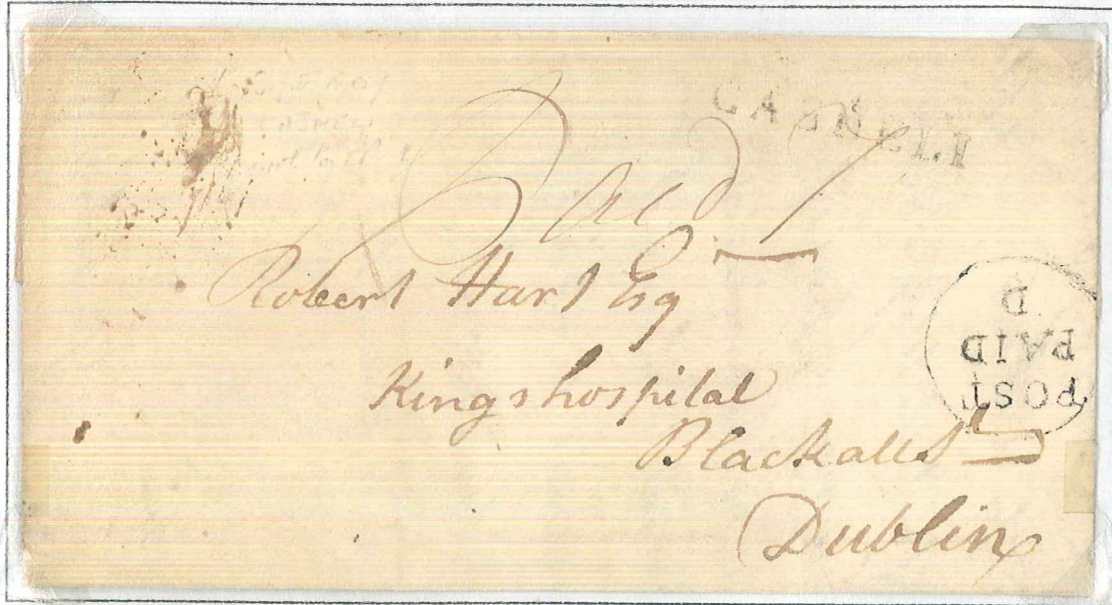 CASHELL
Paid 7
Robert Hart Esq
Kings hospital
Blackall St
Dublin
POST
PAID
D